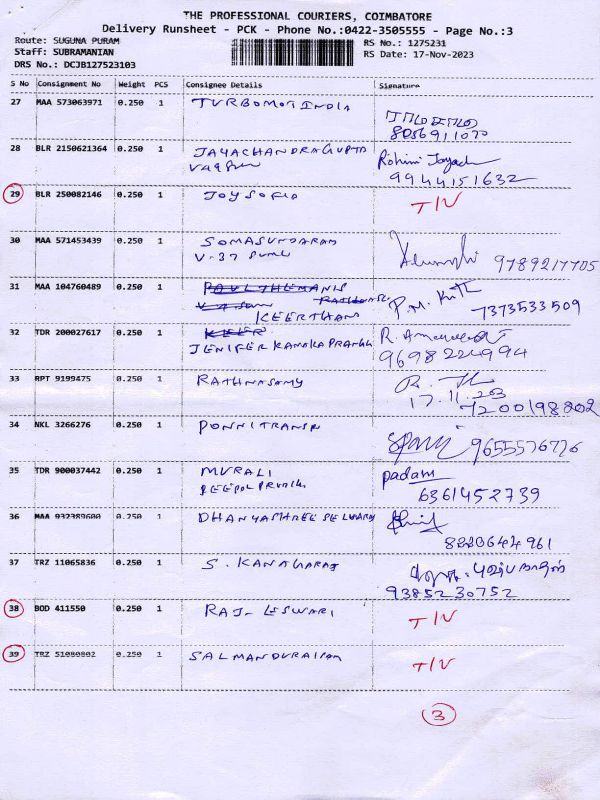 THE PROFESSIONAL COURIERS, COIMBATORE
Delivery Runsheet - PCK - Phone No.:0422-3505555 - Page No.:3
Route: SUGUNA PURAM RS No.: 1275231
Staff: SUBRAMANIAN RS Date: 17-Nov-2023
DRS No.: DCJB127523103
S No Consignment No Weight PCS Consignee Details Signature
27 MAA 573063971 0.250 1 TURBOMOT INDIA
8056911070
28 BLR 2150621364 0.250 1 JAYACHANDRAGUPTA Rohini Jayach
9944151632
29 BLR 250082146 0.250 1 JOY SOFIA T/V
30 MAA 571453439 0.250 1 SOMASUNDARAM
V-37 9789217705
31 MAA 104760489 0.250 1
KEERTHANS P.M. 7373533509
32 TDR 200027617 0.250 1 R.
JENIFER KANAKA 9698224994
33 RPT 9199475 0.250 1 RATHNASAMY
17.11.203
7200198802
34 NKL 3266276 0.250 1 PONNI TRANSP
9655576776
35 TDR 900037442 0.250 1 MURALI padam
6361452739
36 MAA 932389600 0.250 1 DHANYASHREE SELVARAJ
8220644961
37 TRZ 11065836 0.250 1 S. KANAGARAJ
9385230752
38 BOD 411550 0.250 1 RAJ- ESWARI T/V
39 TRZ 51080802 0.250 1 SALMANDURAISAM T/V
3